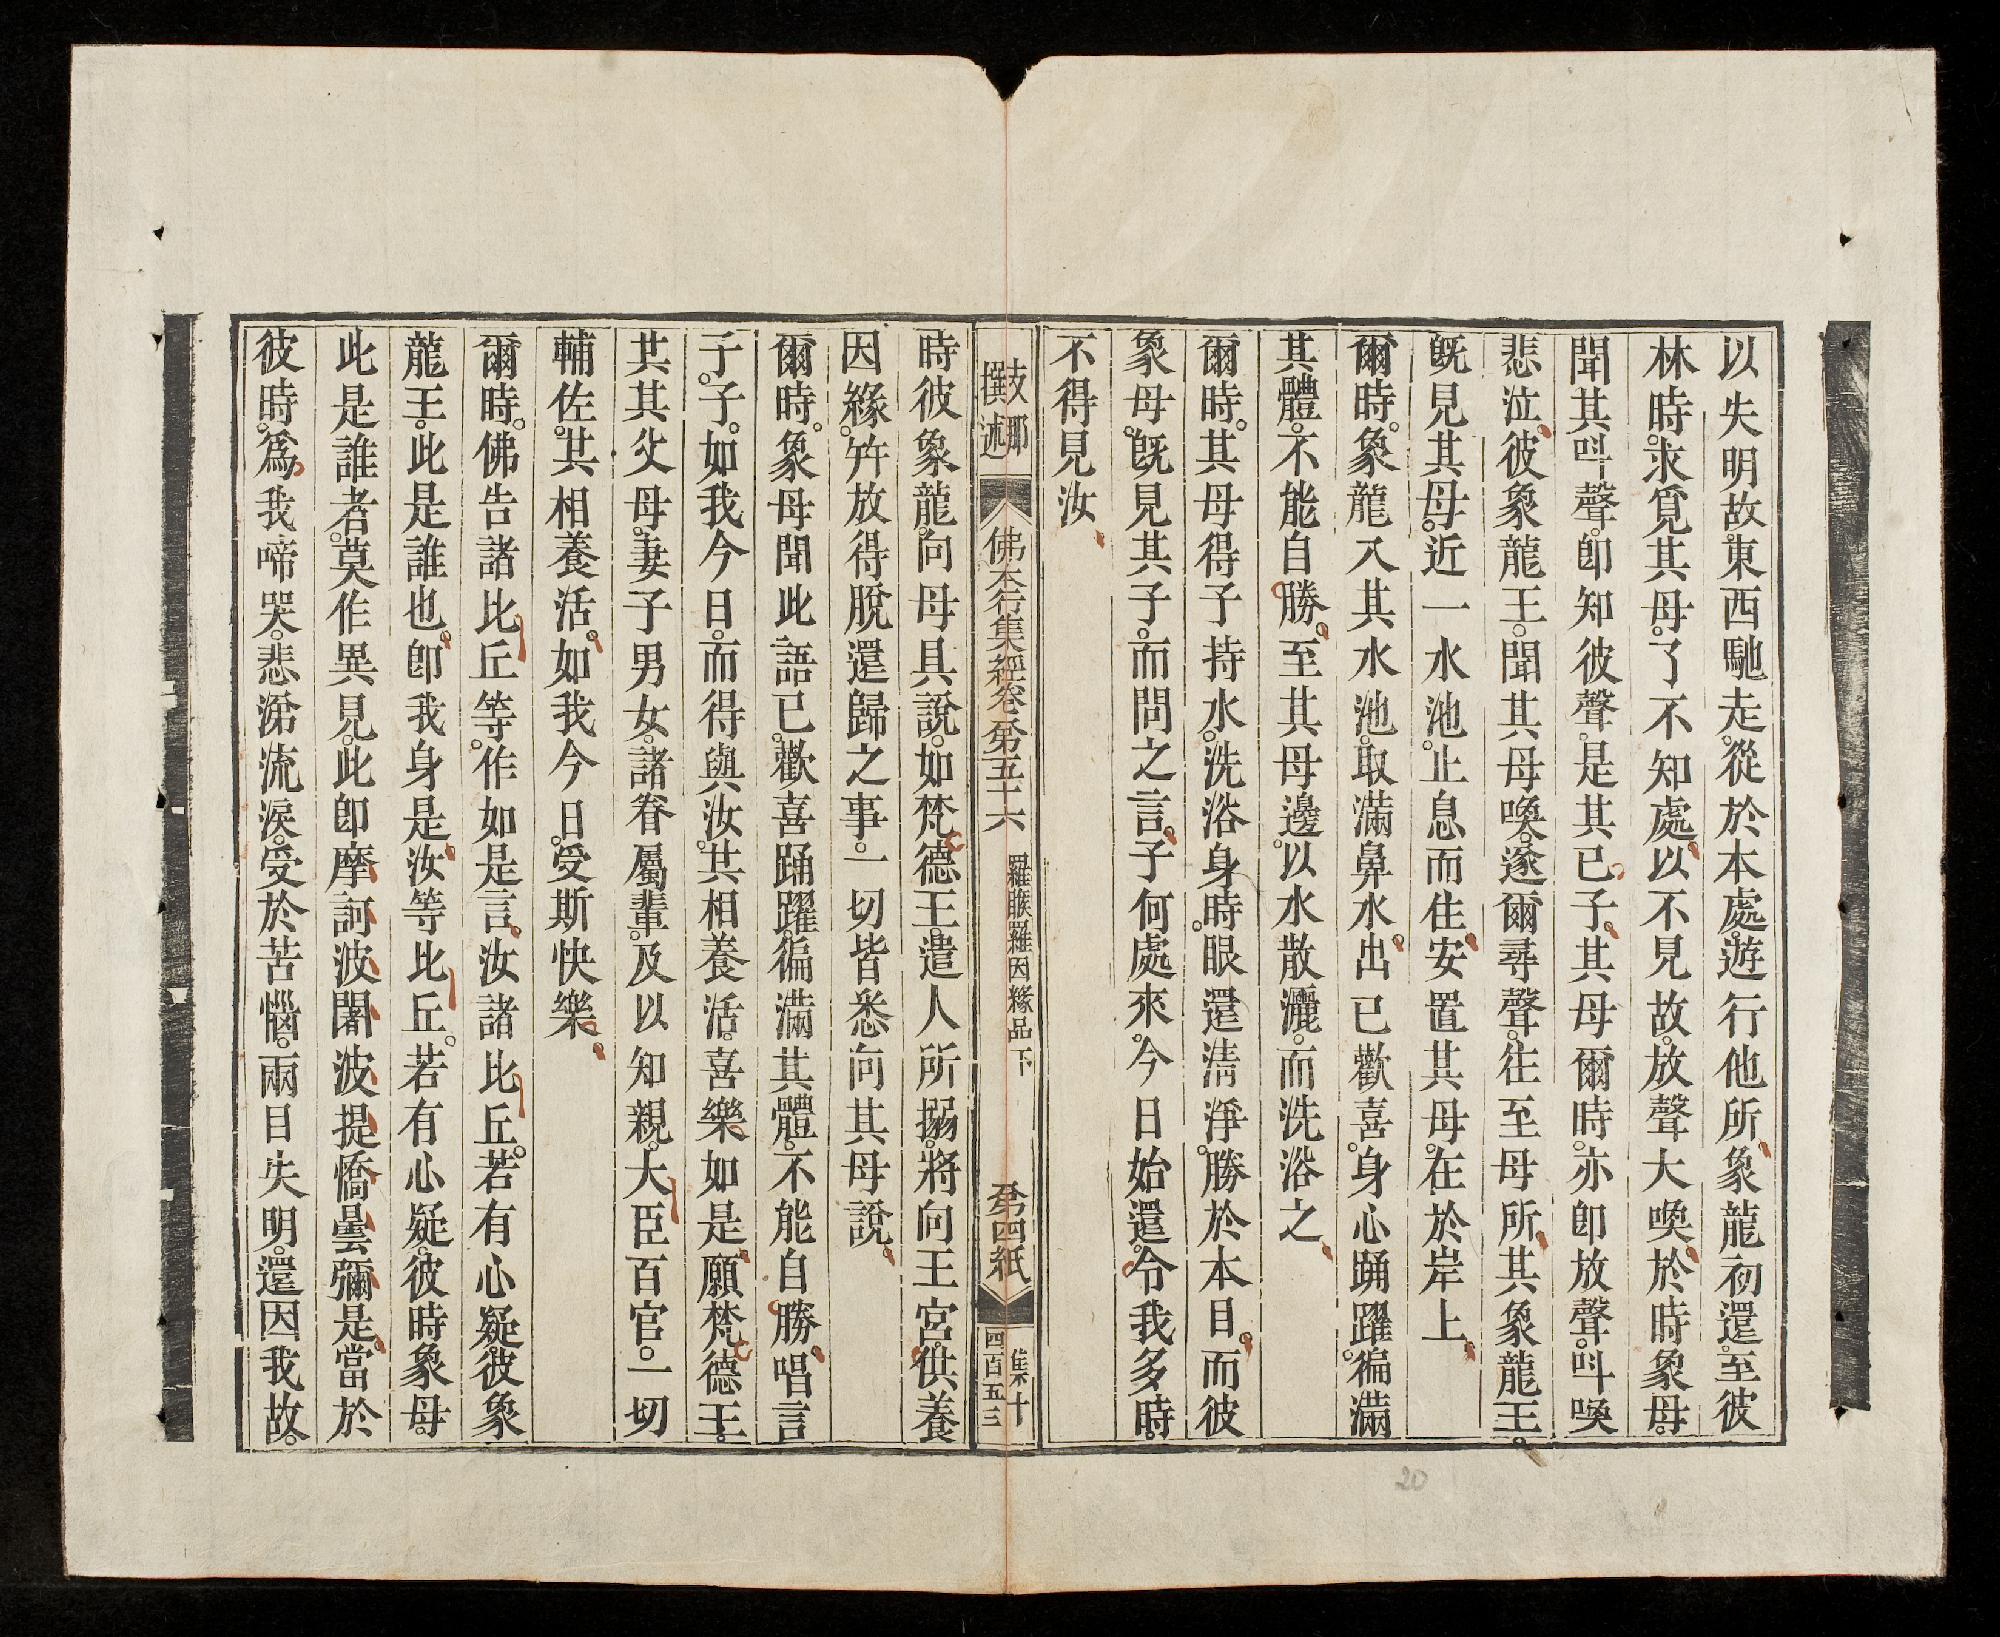 以失明故。東西馳走。從於本處。遊行他所。象龍初還。至彼
林時。求覓其母。了不知處。以不見故。放聲大喚。於時象母。
聞其呌聲。卽知彼聲。是其已子。其母爾時。亦卽放聲。呌喚
悲泣。彼象龍王。聞其母喚。遂爾尋聲。往至母所。其象龍王。
旣見其母。近一水池。止息而住。安置其母。在於岸上。
爾時。象龍入其水池。取滿鼻水。出已歡喜。身心踊躍。徧滿
其體。不能自勝。至其母邊。以水散灑。而洗浴之。
爾時。其母得子持水。洗浴身時。眼還淸淨。勝於本目。而彼
象母。旣見其子。而問之言。子何處來。今日始還。令我多時。
不得見汝。
支那
撰述
佛本行集經卷第五十六 羅睺羅因緣品下 第四紙
集十
四百五三
時彼象龍。向母具說。如梵德王。遣人所搦。將向王宮。供養
因緣。幷放得脫還歸之事。一切皆悉向其母說。
爾時。象母聞此語已。歡喜踊躍。徧滿其體。不能自勝。唱言
子。子。如我今日。而得與汝。共相養活。喜樂如是。願梵德王。
共其父母。妻子男女。諸眷屬輩。及以知親。大臣百官。一切
輔佐。共相養活。如我今日。受斯快樂。
爾時。佛告諸比丘等。作如是言。汝諸比丘。若有心疑。彼象
龍王。此是誰也。卽我身是。汝等比丘。若有心疑。彼時象母。
此是誰者。莫作異見。此卽摩訶波闍波提憍曇彌是。當於
彼時。爲我啼哭。悲涕流淚。受於苦惱。兩目失明。還因我故。
20